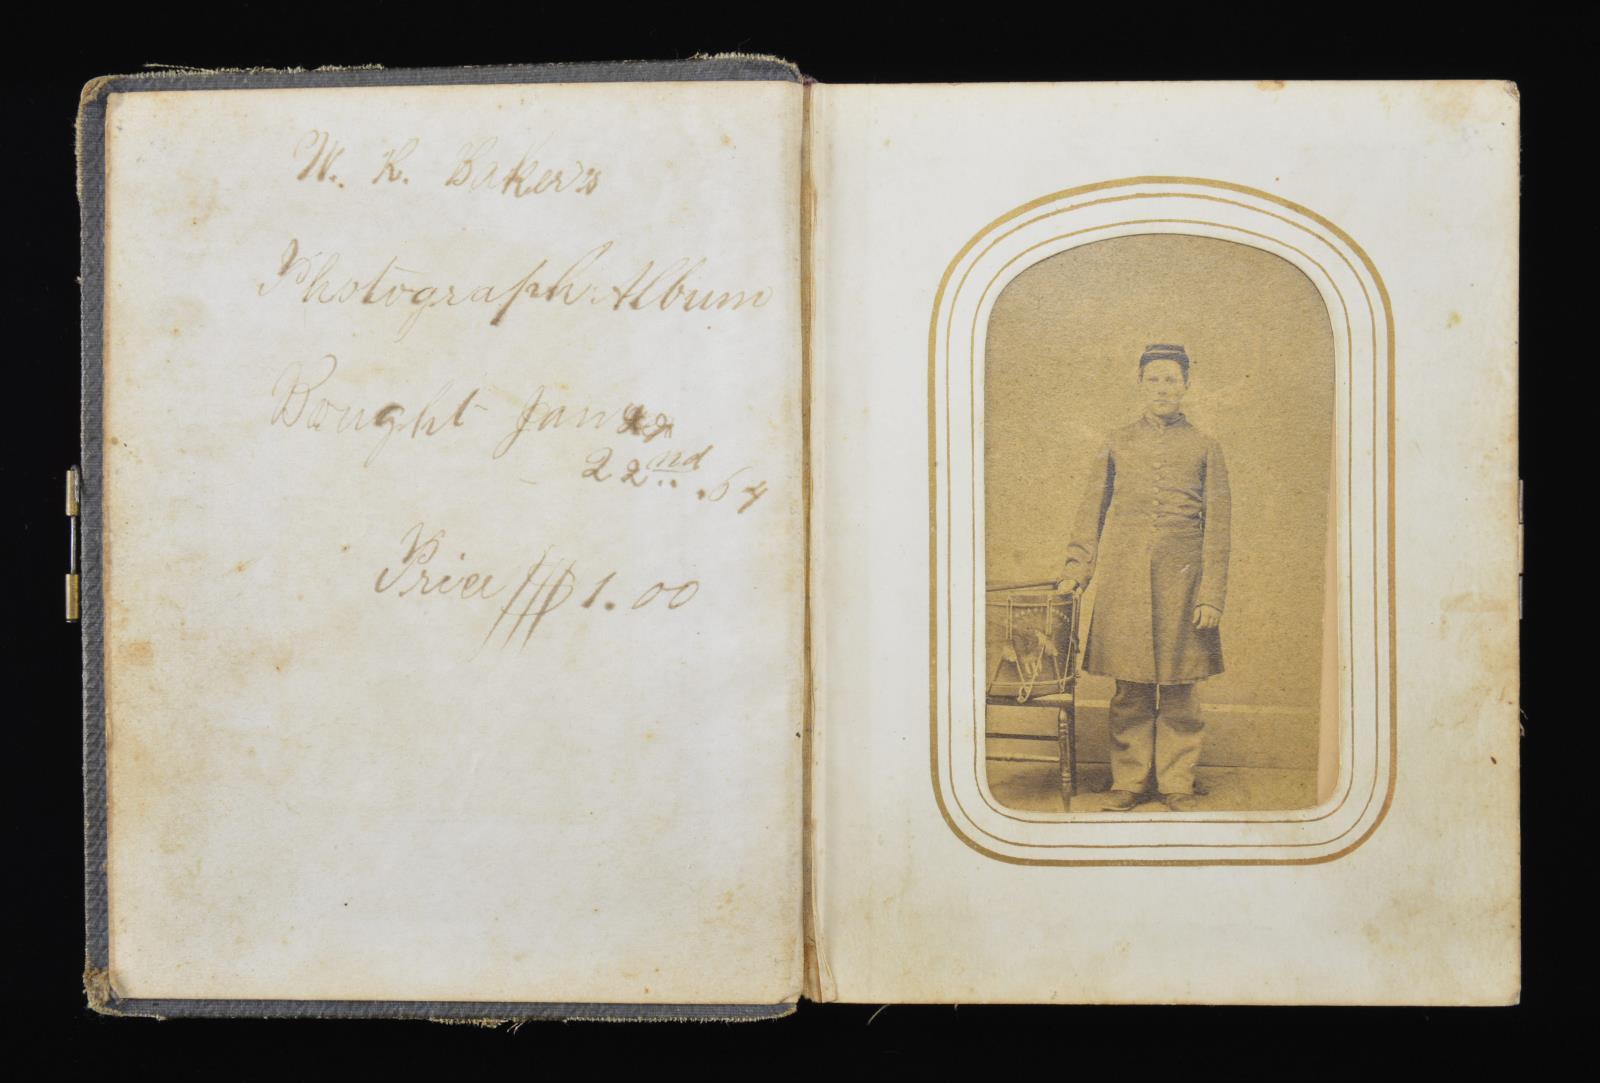 W. K. Baker's
Photograph Album
Bought Jan
22nd .64
Price $1.00